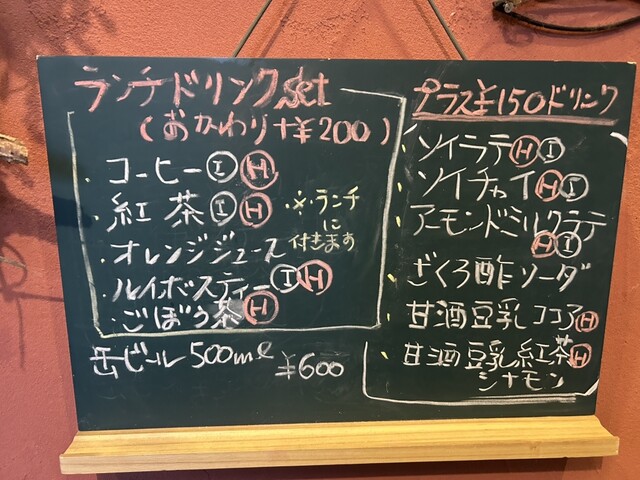 ランチドリンクset
(おかわり+¥200)
・コーヒーⒾⒽ
・紅茶ⒾⒽ
・オレンジジュース
・ルイボスティーⒾⒽ
・ごぼう茶Ⓗ
※ランチ
に
付きます
缶ビール500ml ¥600
プラス¥150ドリンク
・ソイラテⒽⒾ
・ソイチャイⒽⒾ
・アーモンドミルクラテ
ⒽⒾ
・ざくろ酢ソーダ
・甘酒豆乳ココアⒽ
・甘酒豆乳紅茶Ⓗ
シナモン